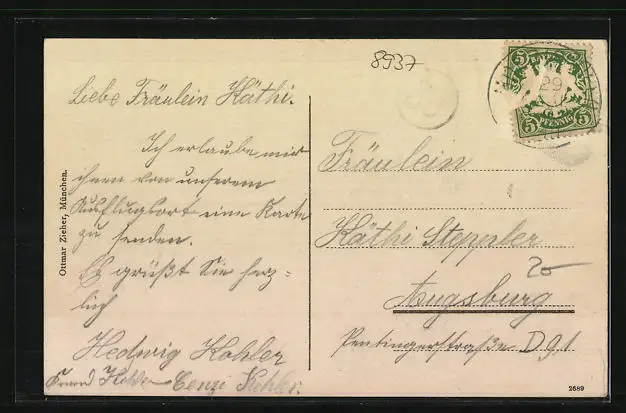 8937
Liebe Fräulein Käthi.
Ich erlaube mir
ihnen von unserem
Ausflugsort eine Karte
zu senden.
Es grüßt Sie herz=
lich
Hedwig Kohler
Cenzi Kohler.
Ottmar Zieher, München.
5 5
29
PFENNIG
5 5
Fräulein
Käthi Steppler
20
Augsburg
Peutingerstraße D 91
2689